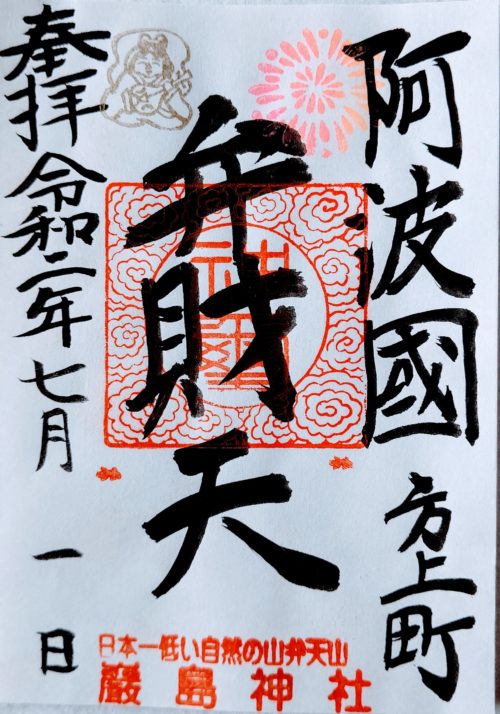 阿波國 方上町
弁財天
奉拝 令和二年 七月 一日
神璽
日本一低い自然の山弁天山
巖島神社